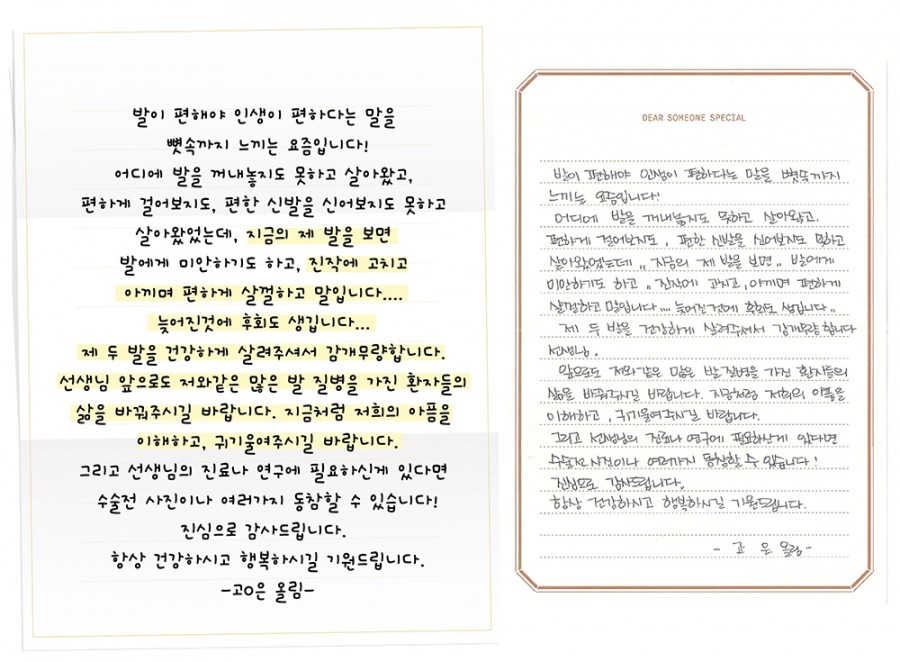 발이 편해야 인생이 편하다는 말을
뼛속까지 느끼는 요즘입니다!
어디에 발을 꺼내놓지도 못하고 살아왔고,
편하게 걸어보지도, 편한 신발을 신어보지도 못하고
살아왔었는데, 지금의 제 발을 보면
발에게 미안하기도 하고, 진작에 고치고
아끼며 편하게 살껄하고 말입니다....
늦어진것에 후회도 생깁니다...
제 두 발을 건강하게 살려주셔서 감개무량합니다.
선생님 앞으로도 저와같은 많은 발 질병을 가진 환자들의
삶을 바꿔주시길 바랍니다. 지금처럼 저희의 아픔을
이해하고, 귀기울여주시길 바랍니다.
그리고 선생님의 진료나 연구에 필요하신게 있다면
수술전 사진이나 여러가지 동참할 수 있습니다!
진심으로 감사드립니다.
항상 건강하시고 행복하시길 기원드립니다.
-고O은 올림-
DEAR SOMEONE SPECIAL
발이 편해야 인생이 편하다는 말을 뼛속까지
느끼는 요즘입니다!
어디에 발을 꺼내놓지도 못하고 살아왔고.
편하게 걸어보지도, 편한 신발을 신어보지도 못하고
살아왔었는데,, 지금의 제 발을 보면,, 발에게
미안하기도 하고,, 진작에 고치고, 아끼며 편하게
살껄하고 말입니다.... 늦어진것에 후회도 생깁니다,,
제 두 발을 건강하게 살려주셔서 감개무량 합니다
선생님.
앞으로도 저와같은 많은 발질병을 가진 환자들의
삶을 바꿔주시길 바랍니다. 지금처럼 저희의 아픔을
이해하고, 귀기울여주시길 바랍니다.
그리고 선생님의 진료나 연구에 필요하신게 있다면
수술전 사진이나 여러가지 동참할 수 있습니다!
진심으로 감사드립니다.
항상 건강하시고 행복하시길 기원드립니다.
- 고 은 올림-